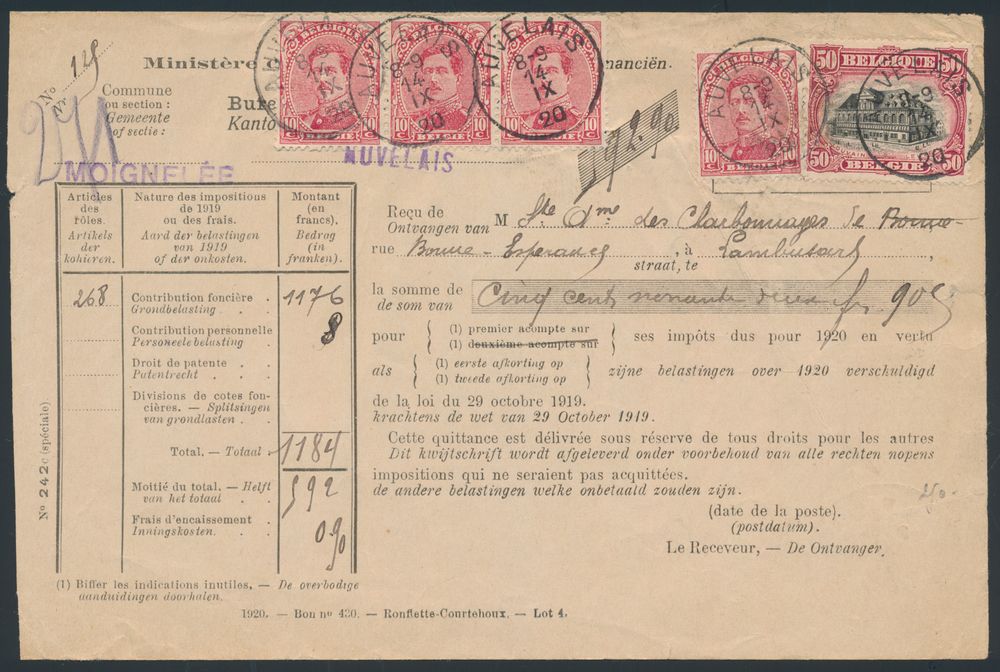 No 125
Ministère
nanciën.
Commune
ou section :
Gemeente
of sectie :
Bure
Kanto
BELGIQUE
10 C 10 C
BELGIË
BELGIQUE
10 C 10 C
BELGIË
BELGIQUE
10 C 10 C
BELGIË
BELGIQUE
10 C 10 C
BELGIË
50 BELGIQUE 50
50 BELGIË 50
AUVELAIS
8-9
14
IX
20
AUVELAIS
8-9
14
IX
20
AUVELAIS
8-9
14
IX
20
AUVELAIS
8-9
14
IX
20
AUVELAIS
8-9
14
IX
20
MOIGNELÉE
AUVELAIS
592.90
Articles
des
rôles.
Artikels
der
kohieren.
Nature des impositions
de 1919
ou des frais.
Aard der belastingen
van 1919
of der onkosten.
Montant
(en
francs).
Bedrag
(in
franken).
268
Contribution foncière . 1176
Grondbelasting . .
Contribution personnelle 8
Personeele belasting .
Droit de patente . .
Patentrecht . . .
Divisions de cotes fon-
cières. — Splitsingen
van grondlasten .
Total. — Totaal 1184
Moitié du total. — Helft 592
van het totaal . .
Frais d'encaissement . 0.90
Inningskosten. . .
No 242c (spéciale)
Reçu de
Ontvangen van M Sté Ame des Charbonnages de Bonne-
rue Bonne-Esperance , à Lambusart ,
straat, te
la somme de Cinq cent nonante deux fr 90c
de som van
pour (1) premier acompte sur ses impôts dus pour 1920 en vertu
(1) deuxième acompte sur
als (1) eerste afkorting op zijne belastingen over 1920 verschuldigd
(1) tweede afkorting op
de la loi du 29 octobre 1919.
krachtens de wet van 29 October 1919.
Cette quittance est délivrée sous réserve de tous droits pour les autres
Dit kwijtschrift wordt afgeleverd onder voorbehoud van alle rechten nopens
impositions qui ne seraient pas acquittées.
de andere belastingen welke onbetaald zouden zijn.
(date de la poste).
(postdatum).
Le Receveur, — De Ontvanger,
(1) Biffer les indications inutiles. — De overbodige
aanduidingen doorhalen.
1920. — Bon no 430. — Ronflette-Courtehoux. — Lot 4.